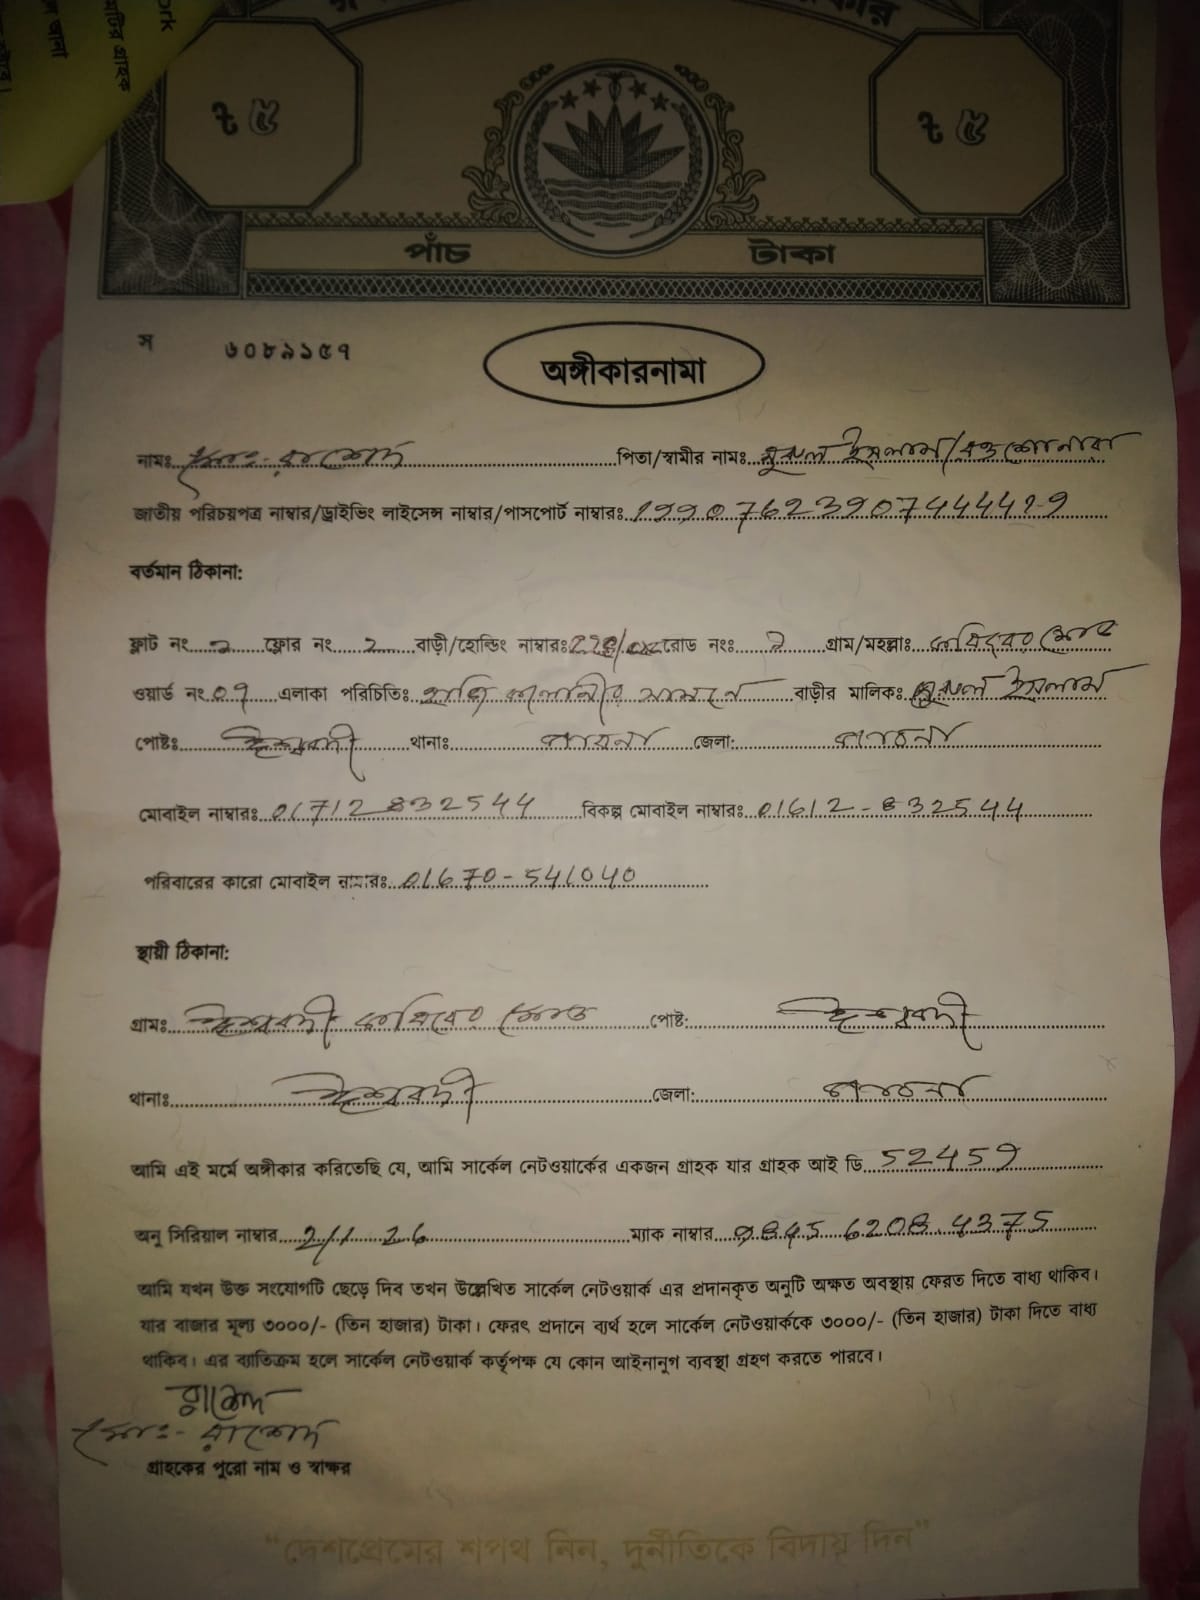 ৳ ৫ ৳ ৫
পাঁচ টাকা
স ৬০৮৯১৫৭
অঙ্গীকারনামা
নামঃ মোঃ- রাশেদ পিতা/স্বামীর নামঃ নুরুল ইসলাম/
জাতীয় পরিচয়পত্র নাম্বার/ড্রাইভিং লাইসেন্স নাম্বার/পাসপোর্ট নাম্বারঃ
বর্তমান ঠিকানা:
ফ্লাট নং ফ্লোর নং 2 বাড়ী/হোল্ডিং নাম্বারঃ রোড নংঃ গ্রাম/মহল্লাঃ
ওয়ার্ড নং 07 এলাকা পরিচিতিঃ কলোনীর সামনে বাড়ীর মালিকঃ নুরুল ইসলাম
পোষ্টঃ ঈশ্বরদী থানাঃ পাবনা জেলা: পাবনা
মোবাইল নাম্বারঃ 01712832544 বিকল্প মোবাইল নাম্বারঃ 01612-832544
পরিবারের কারো মোবাইল নাম্বারঃ 01670-541040
স্থায়ী ঠিকানা:
গ্রামঃ ঈশ্বরদী পোষ্ট: ঈশ্বরদী
থানাঃ ঈশ্বরদী জেলা: পাবনা
আমি এই মর্মে অঙ্গীকার করিতেছি যে, আমি সার্কেল নেটওয়ার্কের একজন গ্রাহক যার গ্রাহক আই ডি 52459
অনু সিরিয়াল নাম্বার 2/1 26 ম্যাক নাম্বার 9845 6208 4375
আমি যখন উক্ত সংযোগটি ছেড়ে দিব তখন উল্লেখিত সার্কেল নেটওয়ার্ক এর প্রদানকৃত অনুটি অক্ষত অবস্থায় ফেরত দিতে বাধ্য থাকিব।
যার বাজার মূল্য ৩০০০/- (তিন হাজার) টাকা। ফেরৎ প্রদানে ব্যর্থ হলে সার্কেল নেটওয়ার্ককে ৩০০০/- (তিন হাজার) টাকা দিতে বাধ্য
থাকিব। এর ব্যতিক্রম হলে সার্কেল নেটওয়ার্ক কর্তৃপক্ষ যে কোন আইনানুগ ব্যবস্থা গ্রহণ করতে পারবে।
রাশেদ
মোঃ- রাশেদ
গ্রাহকের পুরো নাম ও স্বাক্ষর
“দেশপ্রেমের শপথ নিন, দুর্নীতিকে বিদায় দিন”